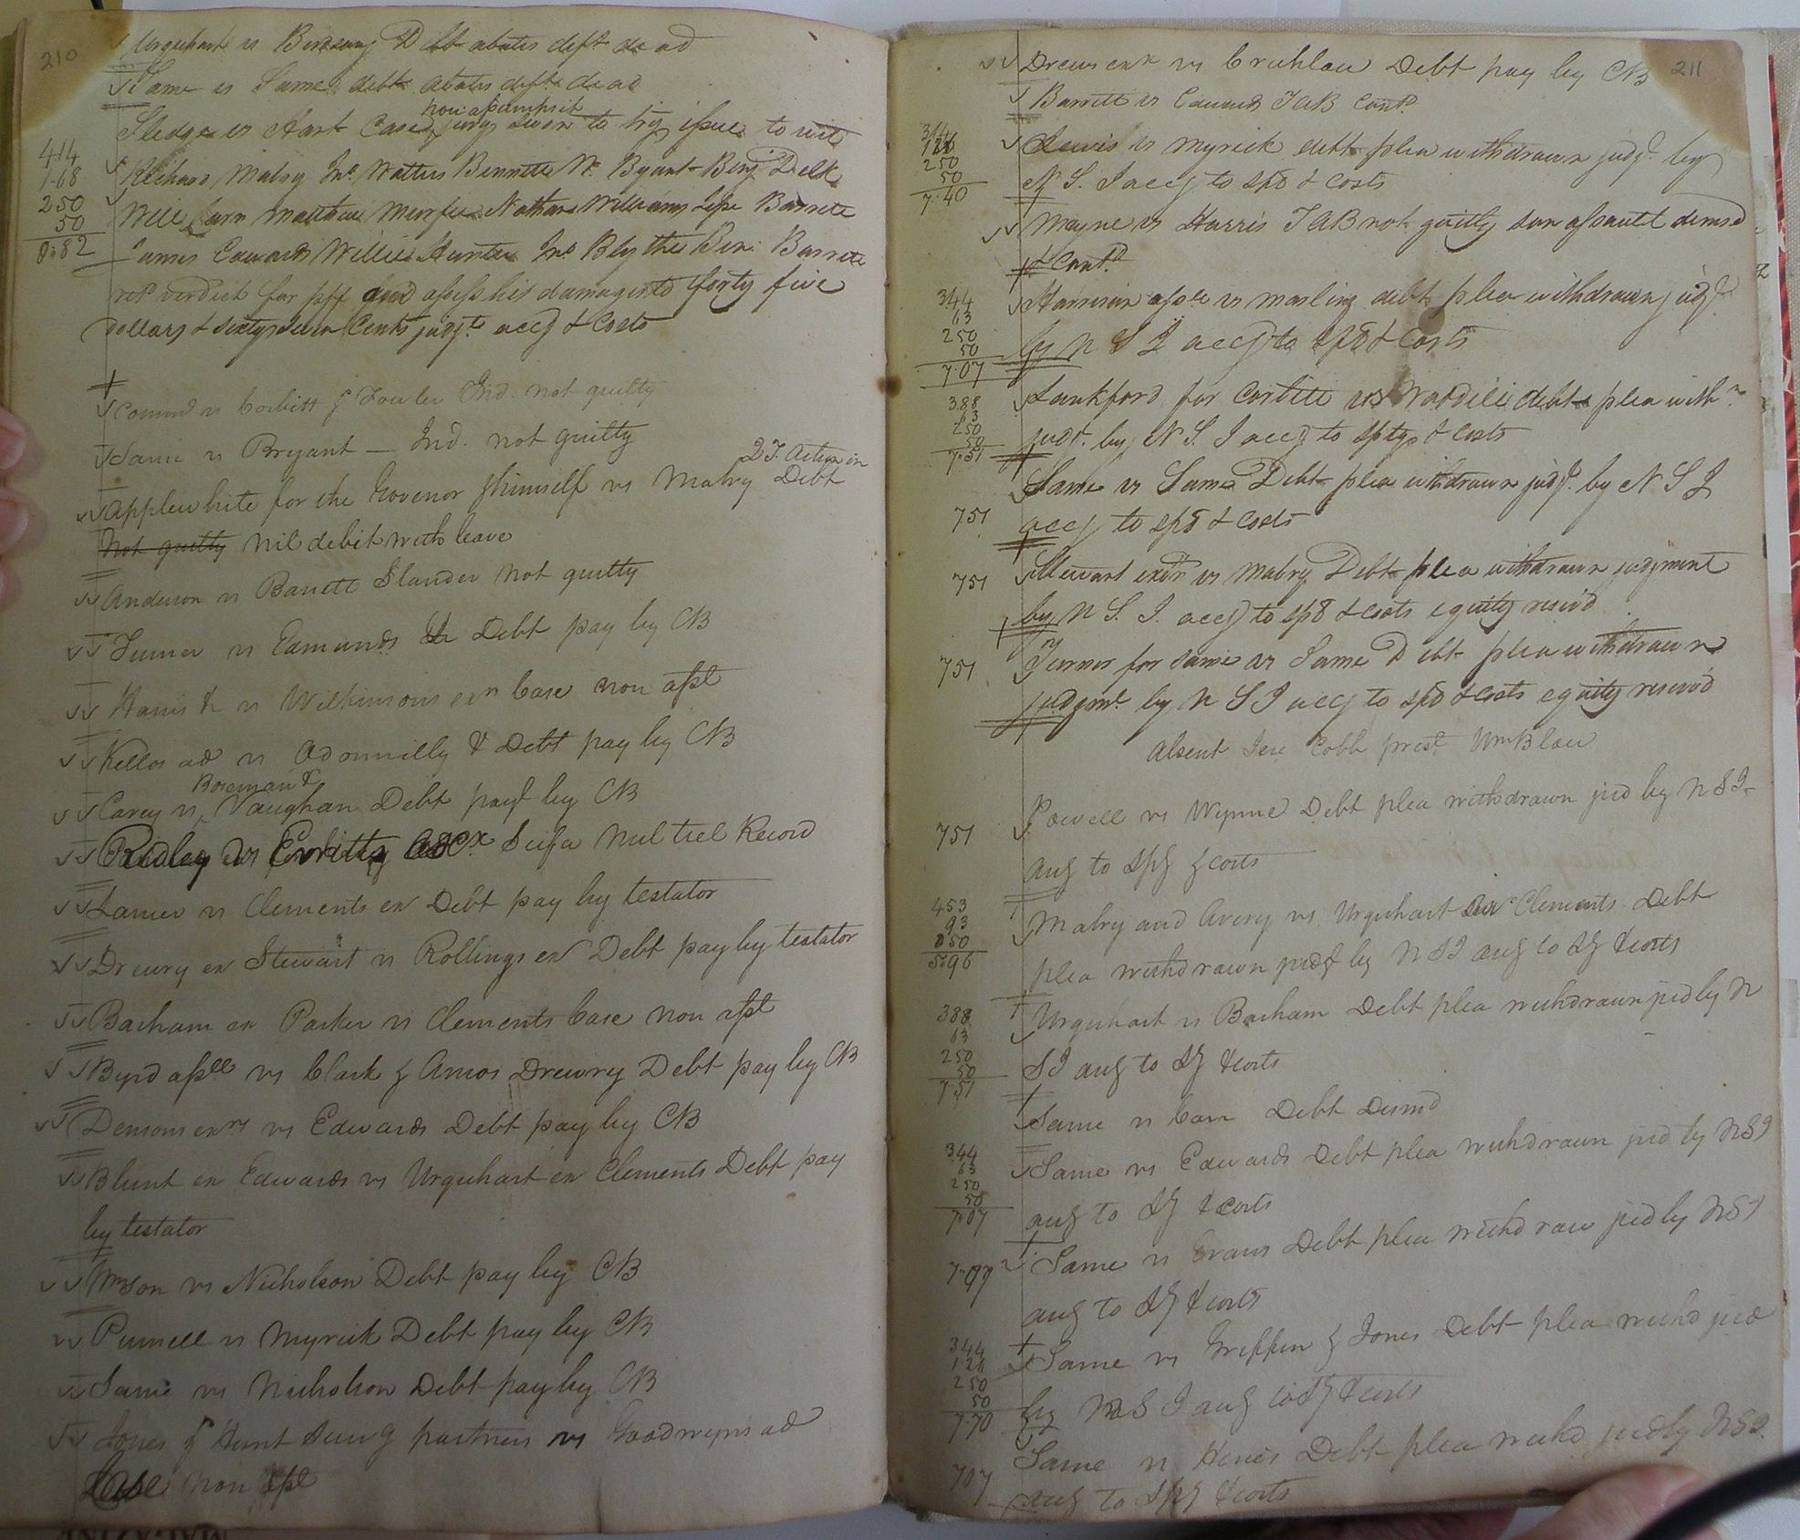 210
Urquhart vs Birdsong Debt abates deft dead
Same vs Same debt abates deft dead
non assumpsit
Sledge vs Hart Case jury sworn to try issue to wit
414
1.68
250
50
8.82
Richard Mabry Jno Watters Bennett Wm Bryant Benj Delk
Will Carr Matthew Murfee Nathan Williams Jesse Barrett
James Edwards Willie Hunter Jno Blythe Ben: Barrett
retd verdict for plf and assess his damages to forty five
dollars & sixty seven Cents judgt accg & Costs
Commd vs Corbitt & Fowler Ind. not guilty
Same vs Bryant — Ind. not guilty
2 T. Action in
Applewhite for the Govenor & himself vs Mabry Debt
Not guilty nil debit with leave
Anderson vs Barrett Slander Not guilty
Turner vs Edmunds Debt pay by CB
Harris vs Wilkinsons exr Case non asst
Kellos ad vs Adonnilly & Debt pay by CB
Boseman &
Carey vs Vaughan Debt payt by CB
Ridley vs Scifa nul tiel Record
Lanier vs Clements ex Debt pay by testator
Drewry ex Stewart vs Rollings ex Debt pay by testator
Barham ex Parker vs Clements Case non asst
Byrd assee vs Clark & Amos Drewry Debt pay by CB
Densons exrs vs Edwards Debt pay by CB
Blunt ex Edwards vs Urquhart ex Clements Debt pay
by testator
Wmson vs Nicholson Debt pay by CB
Purnell vs Myrick Debt pay by CB
Same vs Nicholson Debt pay by CB
Jones & Hunt Survg partners vs Goodwyns ad
Case non asst
211
Drews exr vs Debt pay by CB
Barrett vs Edwards TAB Contd
314
126
250
50
7.40
Lewis vs Myrick debt plea withdrawn judgt by
N S. I accg to spt & costs
Mayne vs Harris TAB not guilty son assault demesd
& Contd
344
63
250
50
7.07
Harrison assee vs Masling debt plea withdrawn judgt
by N S I accg to spt & Costs
388
63
250
50
7.51
Lankford for Corbitt vs debt plea withn
judt. by N S. I accg to spty & costs
Same vs Same Debt plea withdrawn judgt. by N S I
751
accg to spt & costs
751
Stewart exor vs Mabry Debt plea withdrawn judgment
by N S. I. accg to spt & costs equity reserv'd
751
Turner for same vs Same Debt plea withdrawn
judgmt by N S I accg to spt & costs equity reserv'd
Absent Jere Cobb prest. Wm Blow
751
Powell vs Wynne Debt plea withdrawn jud by N S I
accg to spy & costs
453
93
050
5.96
Mabry and Avery vs Urquhart exr Clements Debt
plea withdrawn judgt by N S I accg to Spy & costs
388
63
250
50
751
Urquhart vs Barham Debt plea withdrawn jud by N
S I accg to Spy & costs
Same vs Carr Debt Dismd
344
63
250
50
7.07
Same vs Edwards Debt plea withdrawn jud by N S I
accg to Spy & costs
7.07
Same vs Evans Debt plea withdraw jud by N S I
accg to Spy & costs
344
126
250
50
7.70
Same vs Griffin & Jones Debt plea withd jud
by N S I accg to Spy & costs
707
Same vs Hines Debt plea withd jud by N S I
accg to Spy & costs